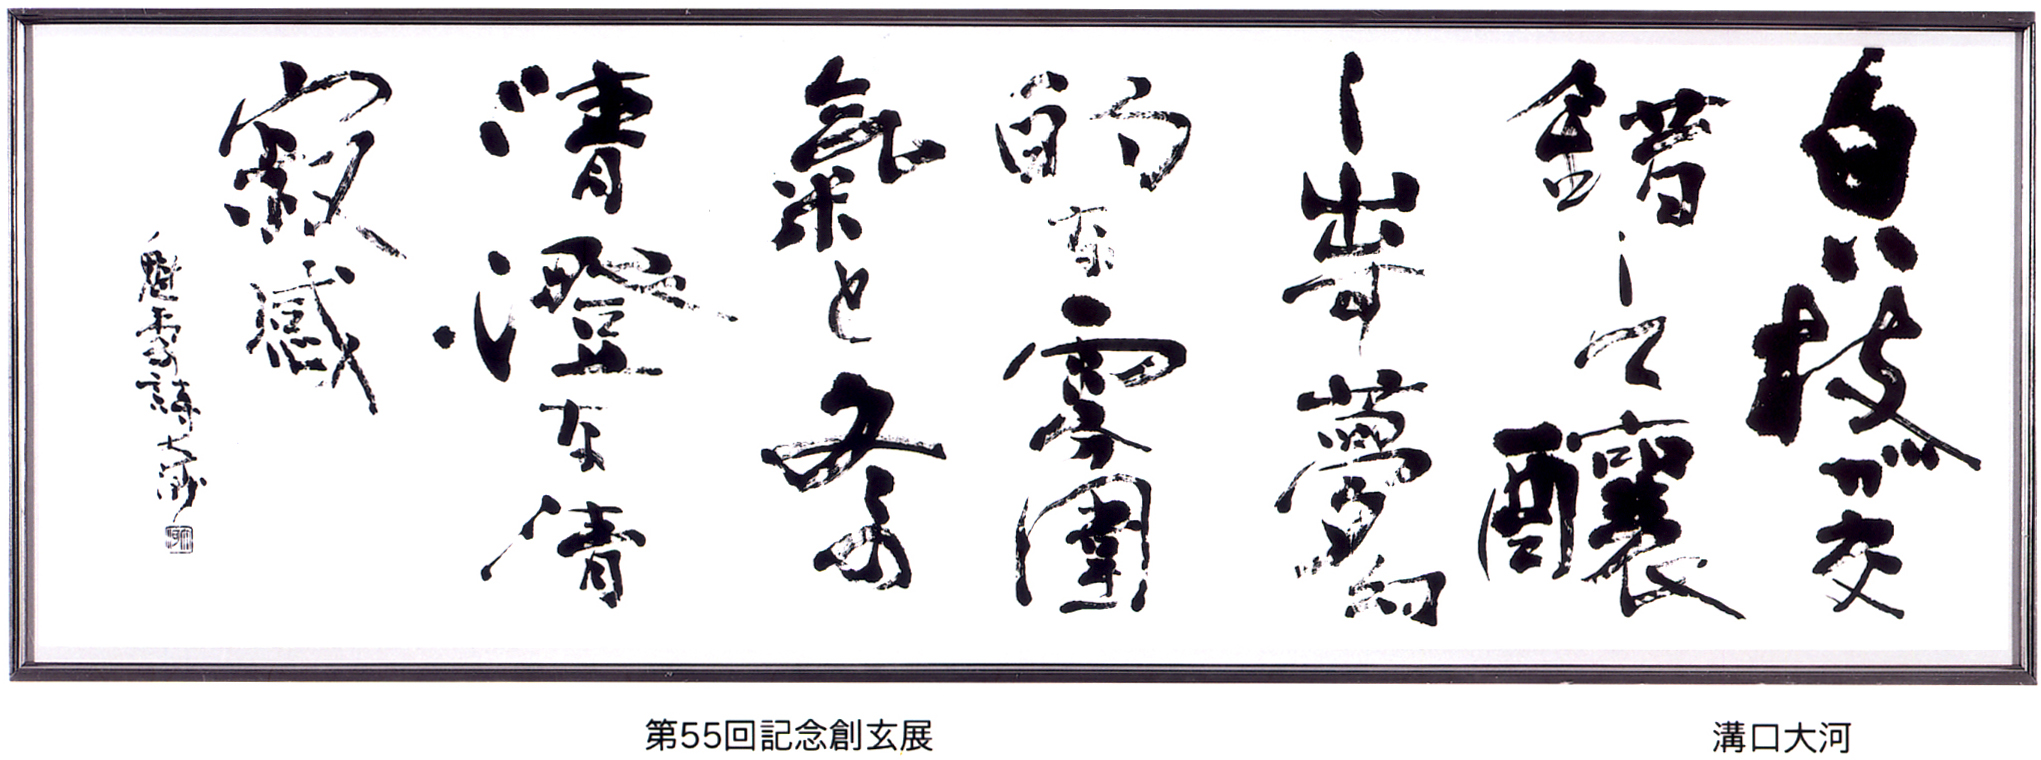 白い枝が交
錯して醸
し出す夢幻
的な雰圍
氣と冬の
清澄な清
寂感
魁 詩 大河
第55回記念創玄展
溝口大河